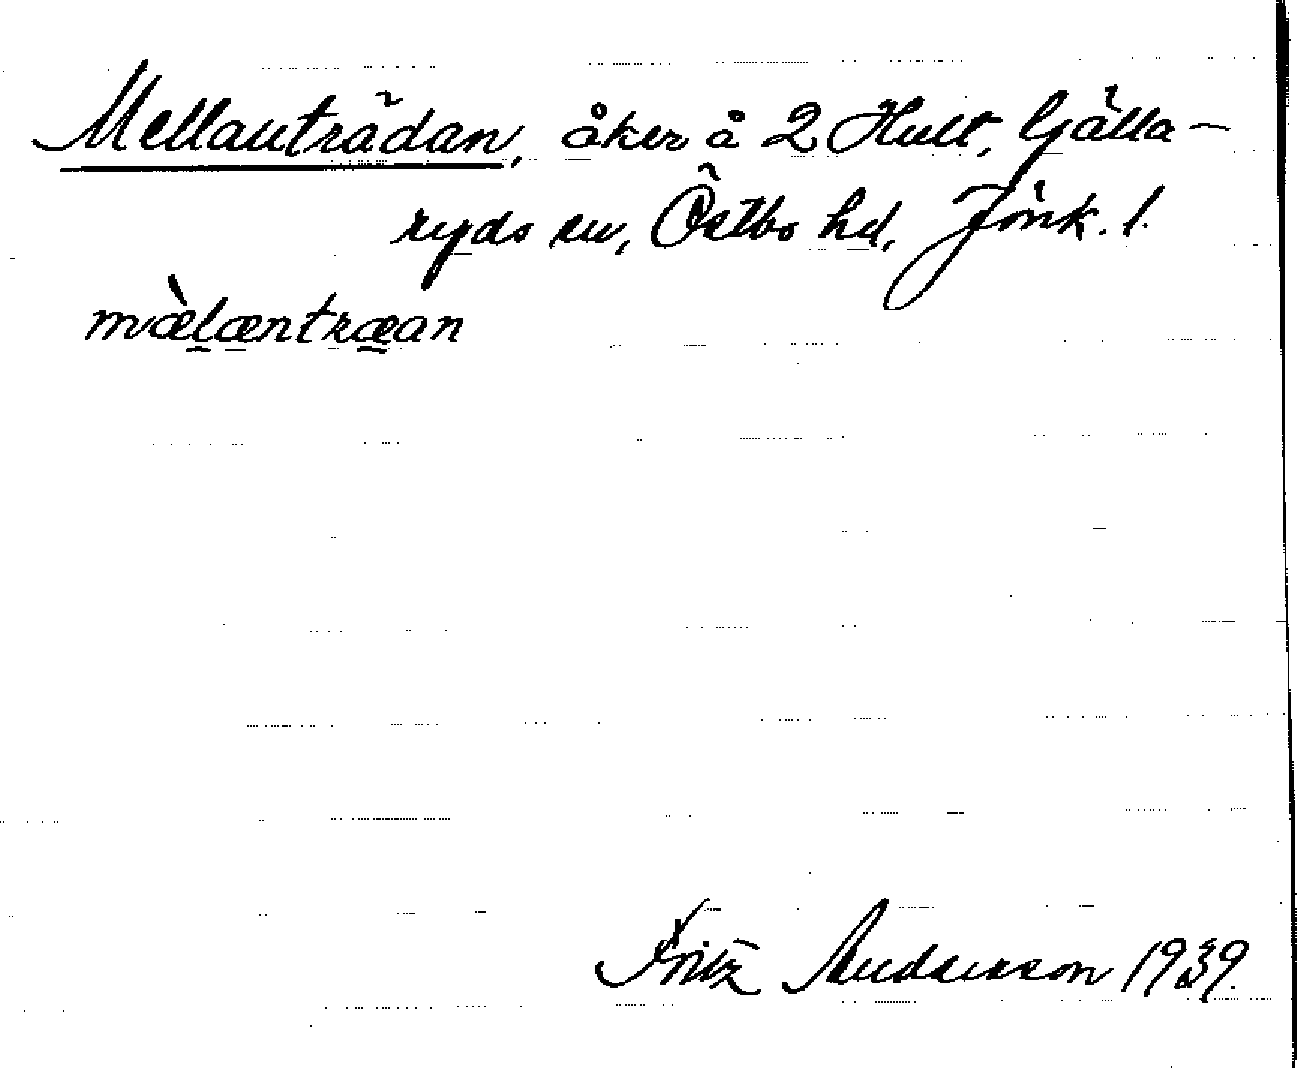 Mellanträdan, åker å 2 Hult, Gjälla-
ryds sn, Östbo hd, Jönk. l.
mæ̀læntræan
Fritz Andersson 1939.